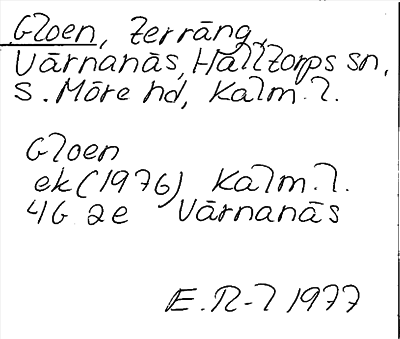 Gloen, Terräng,
Värnanäs, Halltorps sn,
S. Möre hd, Kalm. l.
Gloen
ek (1976) Kalm. l.
4G 2e Värnanäs
E. R-l 1977